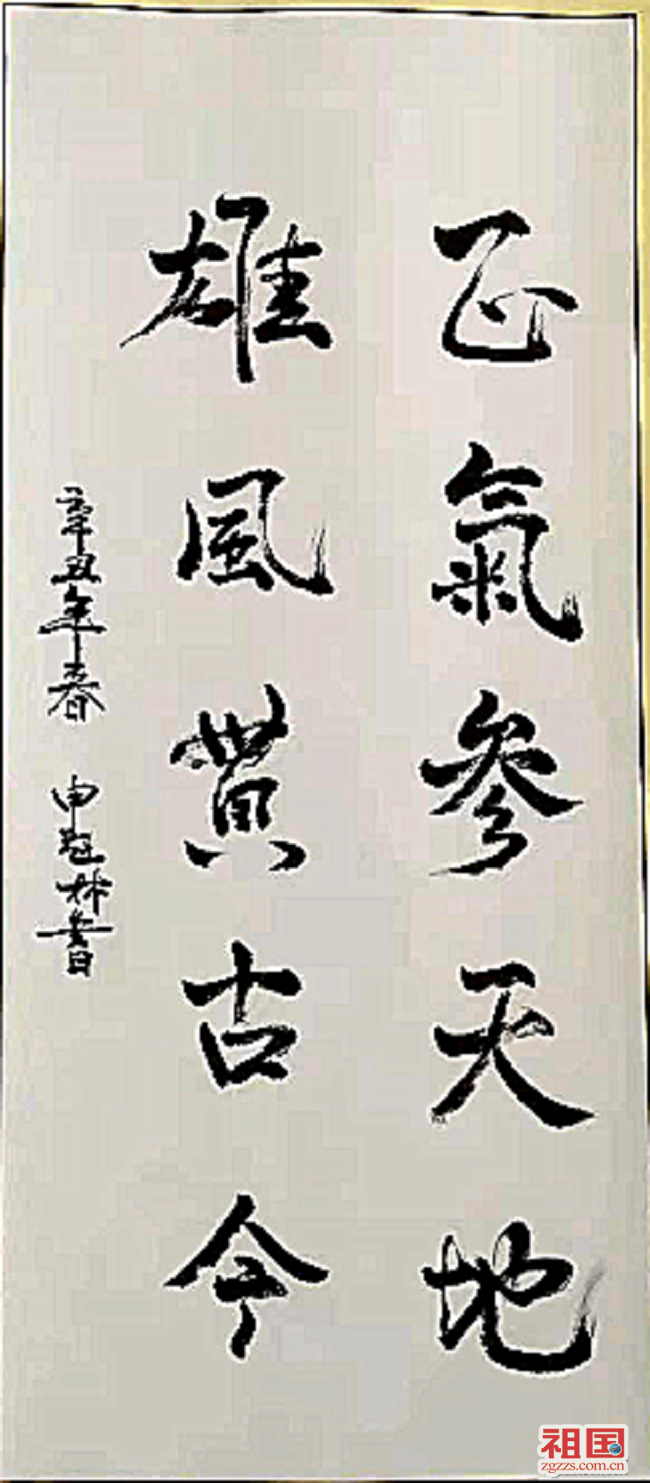 正氣參天地
雄風貫古今
辛丑年春 申 林書
祖国
zgzzs.com.cn